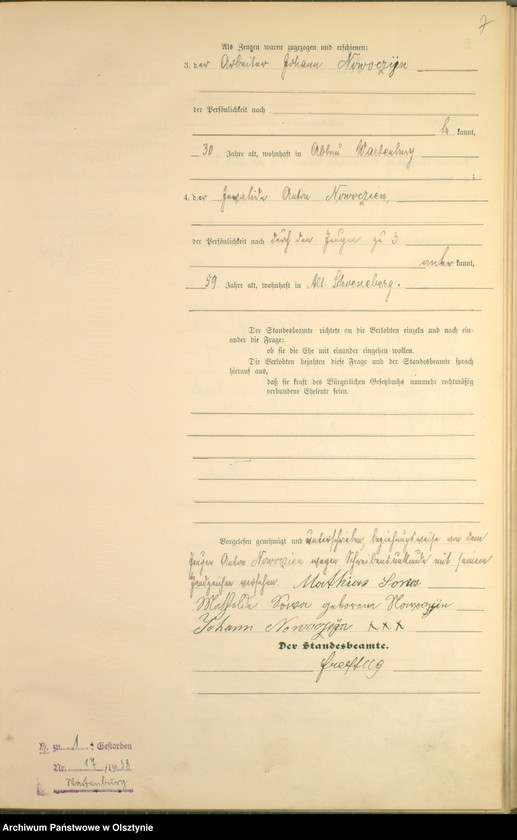 7
Als Zeugen waren zugezogen und erschienen:
3. der Arbeiter Johann Nowoczÿn
der Persönlichkeit nach
be kannt,
30 Jahre alt, wohnhaft in Abbau Wartenburg
;
4. der Invalide Anton Nowoczien,
der Persönlichkeit nach durch den Zeugen zu 3
anerkannt,
59 Jahre alt, wohnhaft in Alt. Schoeneberg.
Der Standesbeamte richtete an die Verlobten einzeln und nach ein-
ander die Frage:
ob sie die Ehe mit einander eingehen wollen.
Die Verlobten bejahten diese Frage und der Standesbeamte sprach
hierauf aus,
daß sie kraft des Bürgerlichen Gesetzbuchs nunmehr rechtmäßig
verbundene Eheleute seien.
Vorgelesen genehmigt und unterschrieben, beziehungsweise von dem
Zeugen Anton Nowoczien wegen Schreibensunkunde mit seinem
Handzeichen versehen. Mathias Sowa
Mathilde Sowa geborene Nowoczÿn
Johann Nowoczÿn xxx
Der Standesbeamte.
H. zu 1 : Gestorben
Nr. 17 /1938
Wartenburg
Archiwum Państwowe w Olsztynie